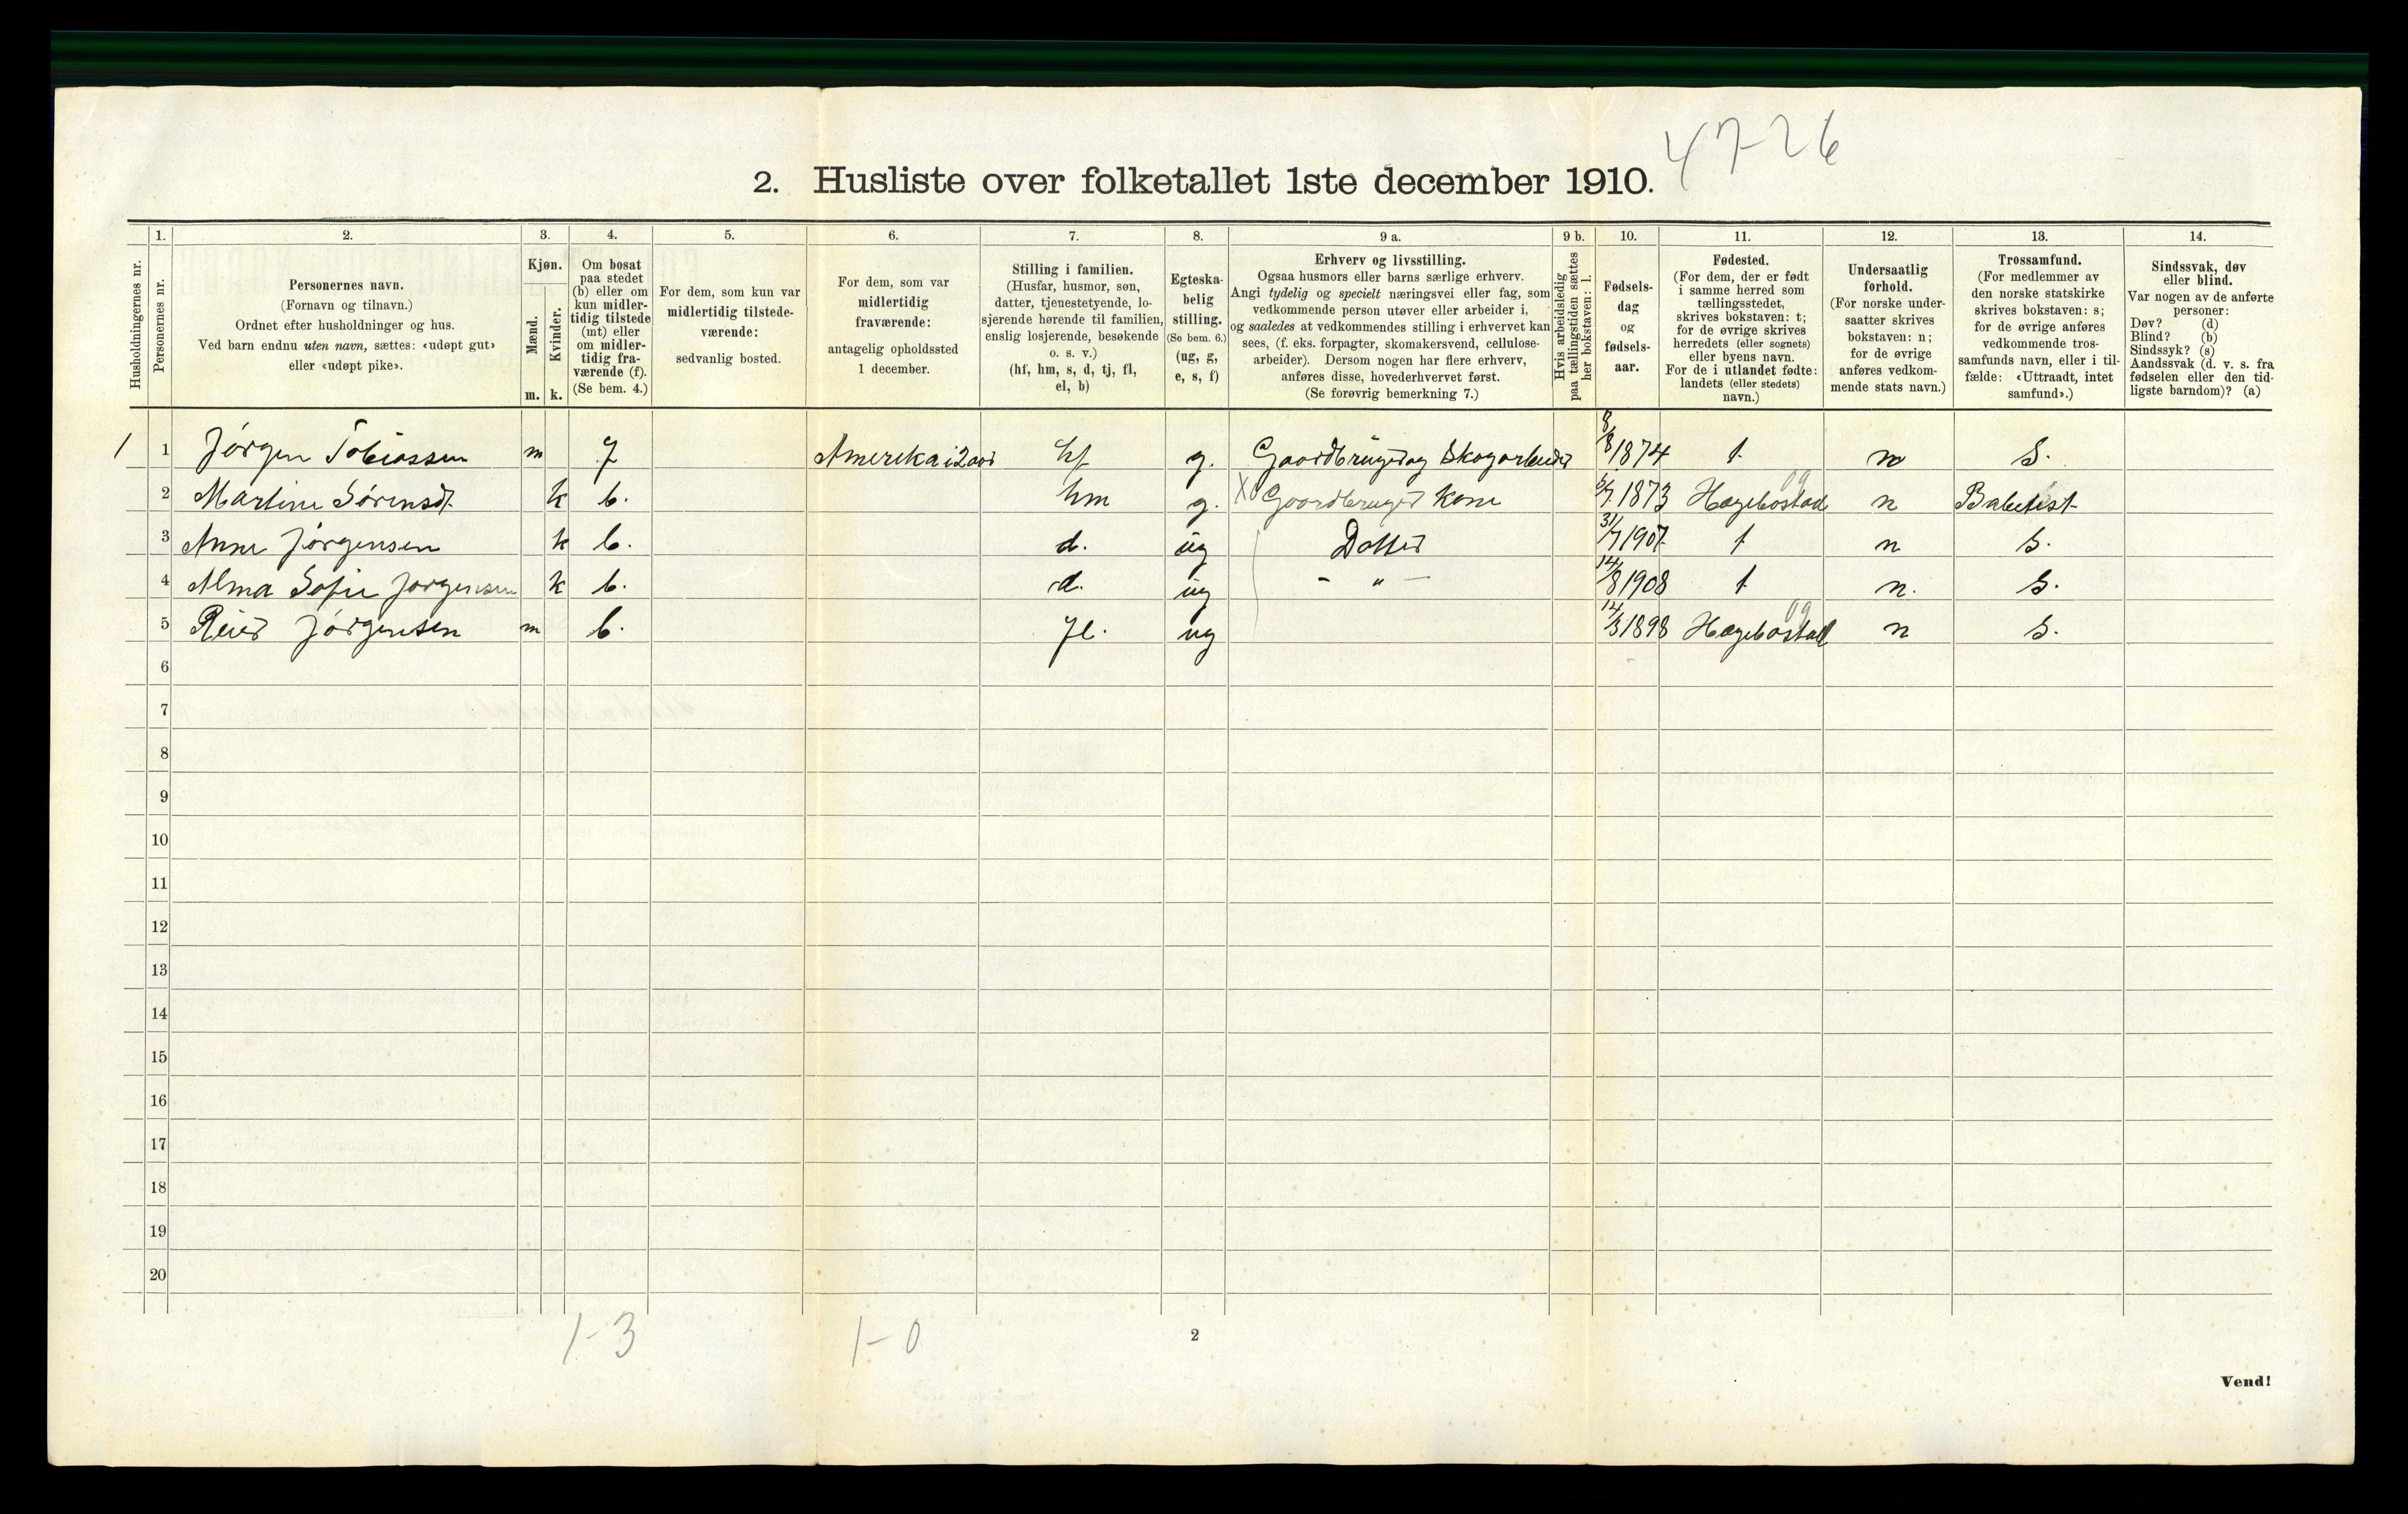 47-26
2. Husliste over folketallet 1ste december 1910.
Husholdningernes nr.
1.
Personernes nr.
2.
Personernes navn.
(Fornavn og tilnavn.)
Ordnet efter husholdninger og hus.
Ved barn endnu uten navn, sættes: «udøpt gut»
eller «udøpt pike».
3.
Kjøn.
Mænd.
Kvinder.
m. k.
4.
Om bosat
paa stedet
(b) eller om
kun midler-
tidig tilstede
(mt) eller
om midler-
tidig fra-
værende (f).
(Se bem. 4.)
5.
For dem, som kun var
midlertidig tilstede-
værende:
sedvanlig bosted.
6.
For dem, som var
midlertidig
fraværende:
antagelig opholdssted
1 december.
7.
Stilling i familien.
(Husfar, husmor, søn,
datter, tjenestetyende, lo-
sjerende hørende til familien,
enslig losjerende, besøkende
o. s. v.)
(hf, hm, s, d, tj, fl,
el, b)
8.
Egteska-
belig
stilling.
(Se bem. 6.)
(ug, g,
e, s, f)
9 a.
Erhverv og livsstilling.
Ogsaa husmors eller barns særlige erhverv.
Angi tydelig og specielt næringsvei eller fag, som
vedkommende person utøver eller arbeider i,
og saaledes at vedkommendes stilling i erhvervet kan
sees, (f. eks. forpagter, skomakersvend, cellulose-
arbeider). Dersom nogen har flere erhverv,
anføres disse, hovederhvervet først.
(Se forøvrig bemerkning 7.)
9 b.
Hvis arbeidsledig
paa tællingstiden sættes
her bokstaven: l.
10.
Fødsels-
dag
og
fødsels-
aar.
11.
Fødested.
(For dem, der er født
i samme herred som
tællingsstedet,
skrives bokstaven: t;
for de øvrige skrives
herredets (eller sognets)
eller byens navn.
For de i utlandet fødte:
landets (eller stedets)
navn.)
12.
Undersaatlig
forhold.
(For norske under-
saatter skrives
bokstaven: n;
for de øvrige
anføres vedkom-
mende stats navn.)
13.
Trossamfund.
(For medlemmer av
den norske statskirke
skrives bokstaven: s;
for de øvrige anføres
vedkommende tros-
samfunds navn, eller i til-
fælde: «Uttraadt, intet
samfund».)
14.
Sindssvak, døv
eller blind.
Var nogen av de anførte
personer:
Døv? (d)
Blind? (b)
Sindssyk? (s)
Aandssvak (d. v. s. fra
fødselen eller den tid-
ligste barndom)? (a)
1 1 Jørgen Tobiassen m f Amerika i 2 aar hf g. Gaardbruger og Skogarbeider 8/8 1874 t n S.
2 Martine Sørensdt. k b. hm g. Gaardbruger Kone 1873 Hægebostad 09 n Babetist
3 Anne Jørgensen k b. d. ug Datter 31/7 1907 t n S.
4 Alma Sofie Jørgensen k b. d. ug - " - 14/8 1908 t n. S.
5 Reier Jørgensen m b. fl. ug 12/3 1898 Hægebostad 09 n S.
6
7
8
9
10
11
12
13
14
15
16
17
18
19
20
1-3 1-0
2
Vend!